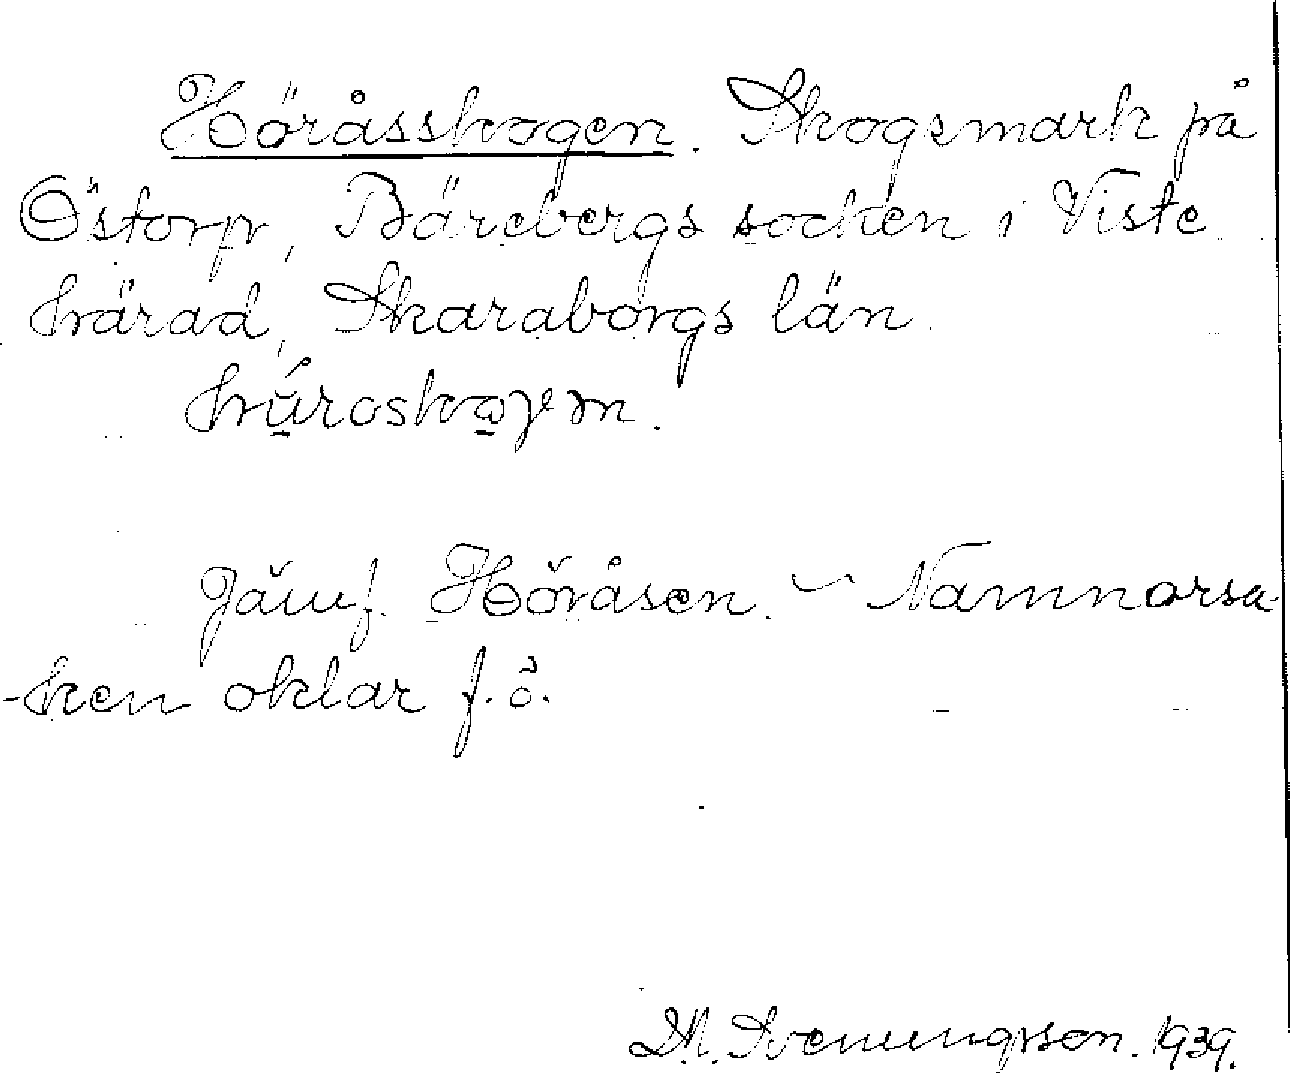 Höråsskogen. Skogsmark på
Östorp, Bärebergs socken i Viste
härad, Skaraborgs län.
Jämf. Höråsen. – Namnorsa-
-ken oklar f. ö.
Svenungsson. 1939.